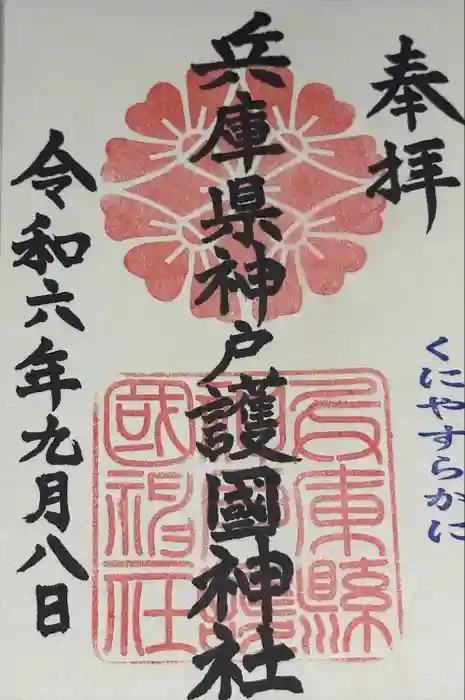 奉拝
くにやすらかに
兵庫県神戸護國神社
兵庫縣
神戸護
國神社
令和六年九月八日